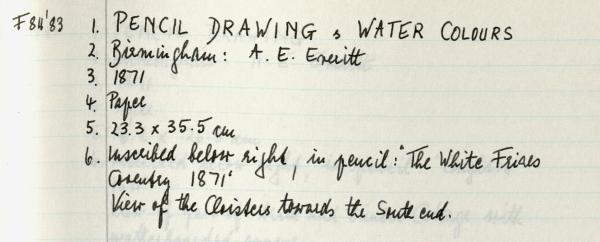 F84'83 1. PENCIL DRAWING & WATER COLOURS
2. Birmingham: A. E. Everitt
3. 1871
4. Paper
5. 23.3 x 35.5 cm
6. Inscribed below right, in pencil: "The White Friars
Coventry 1871"
View of the Cloisters towards the South end.